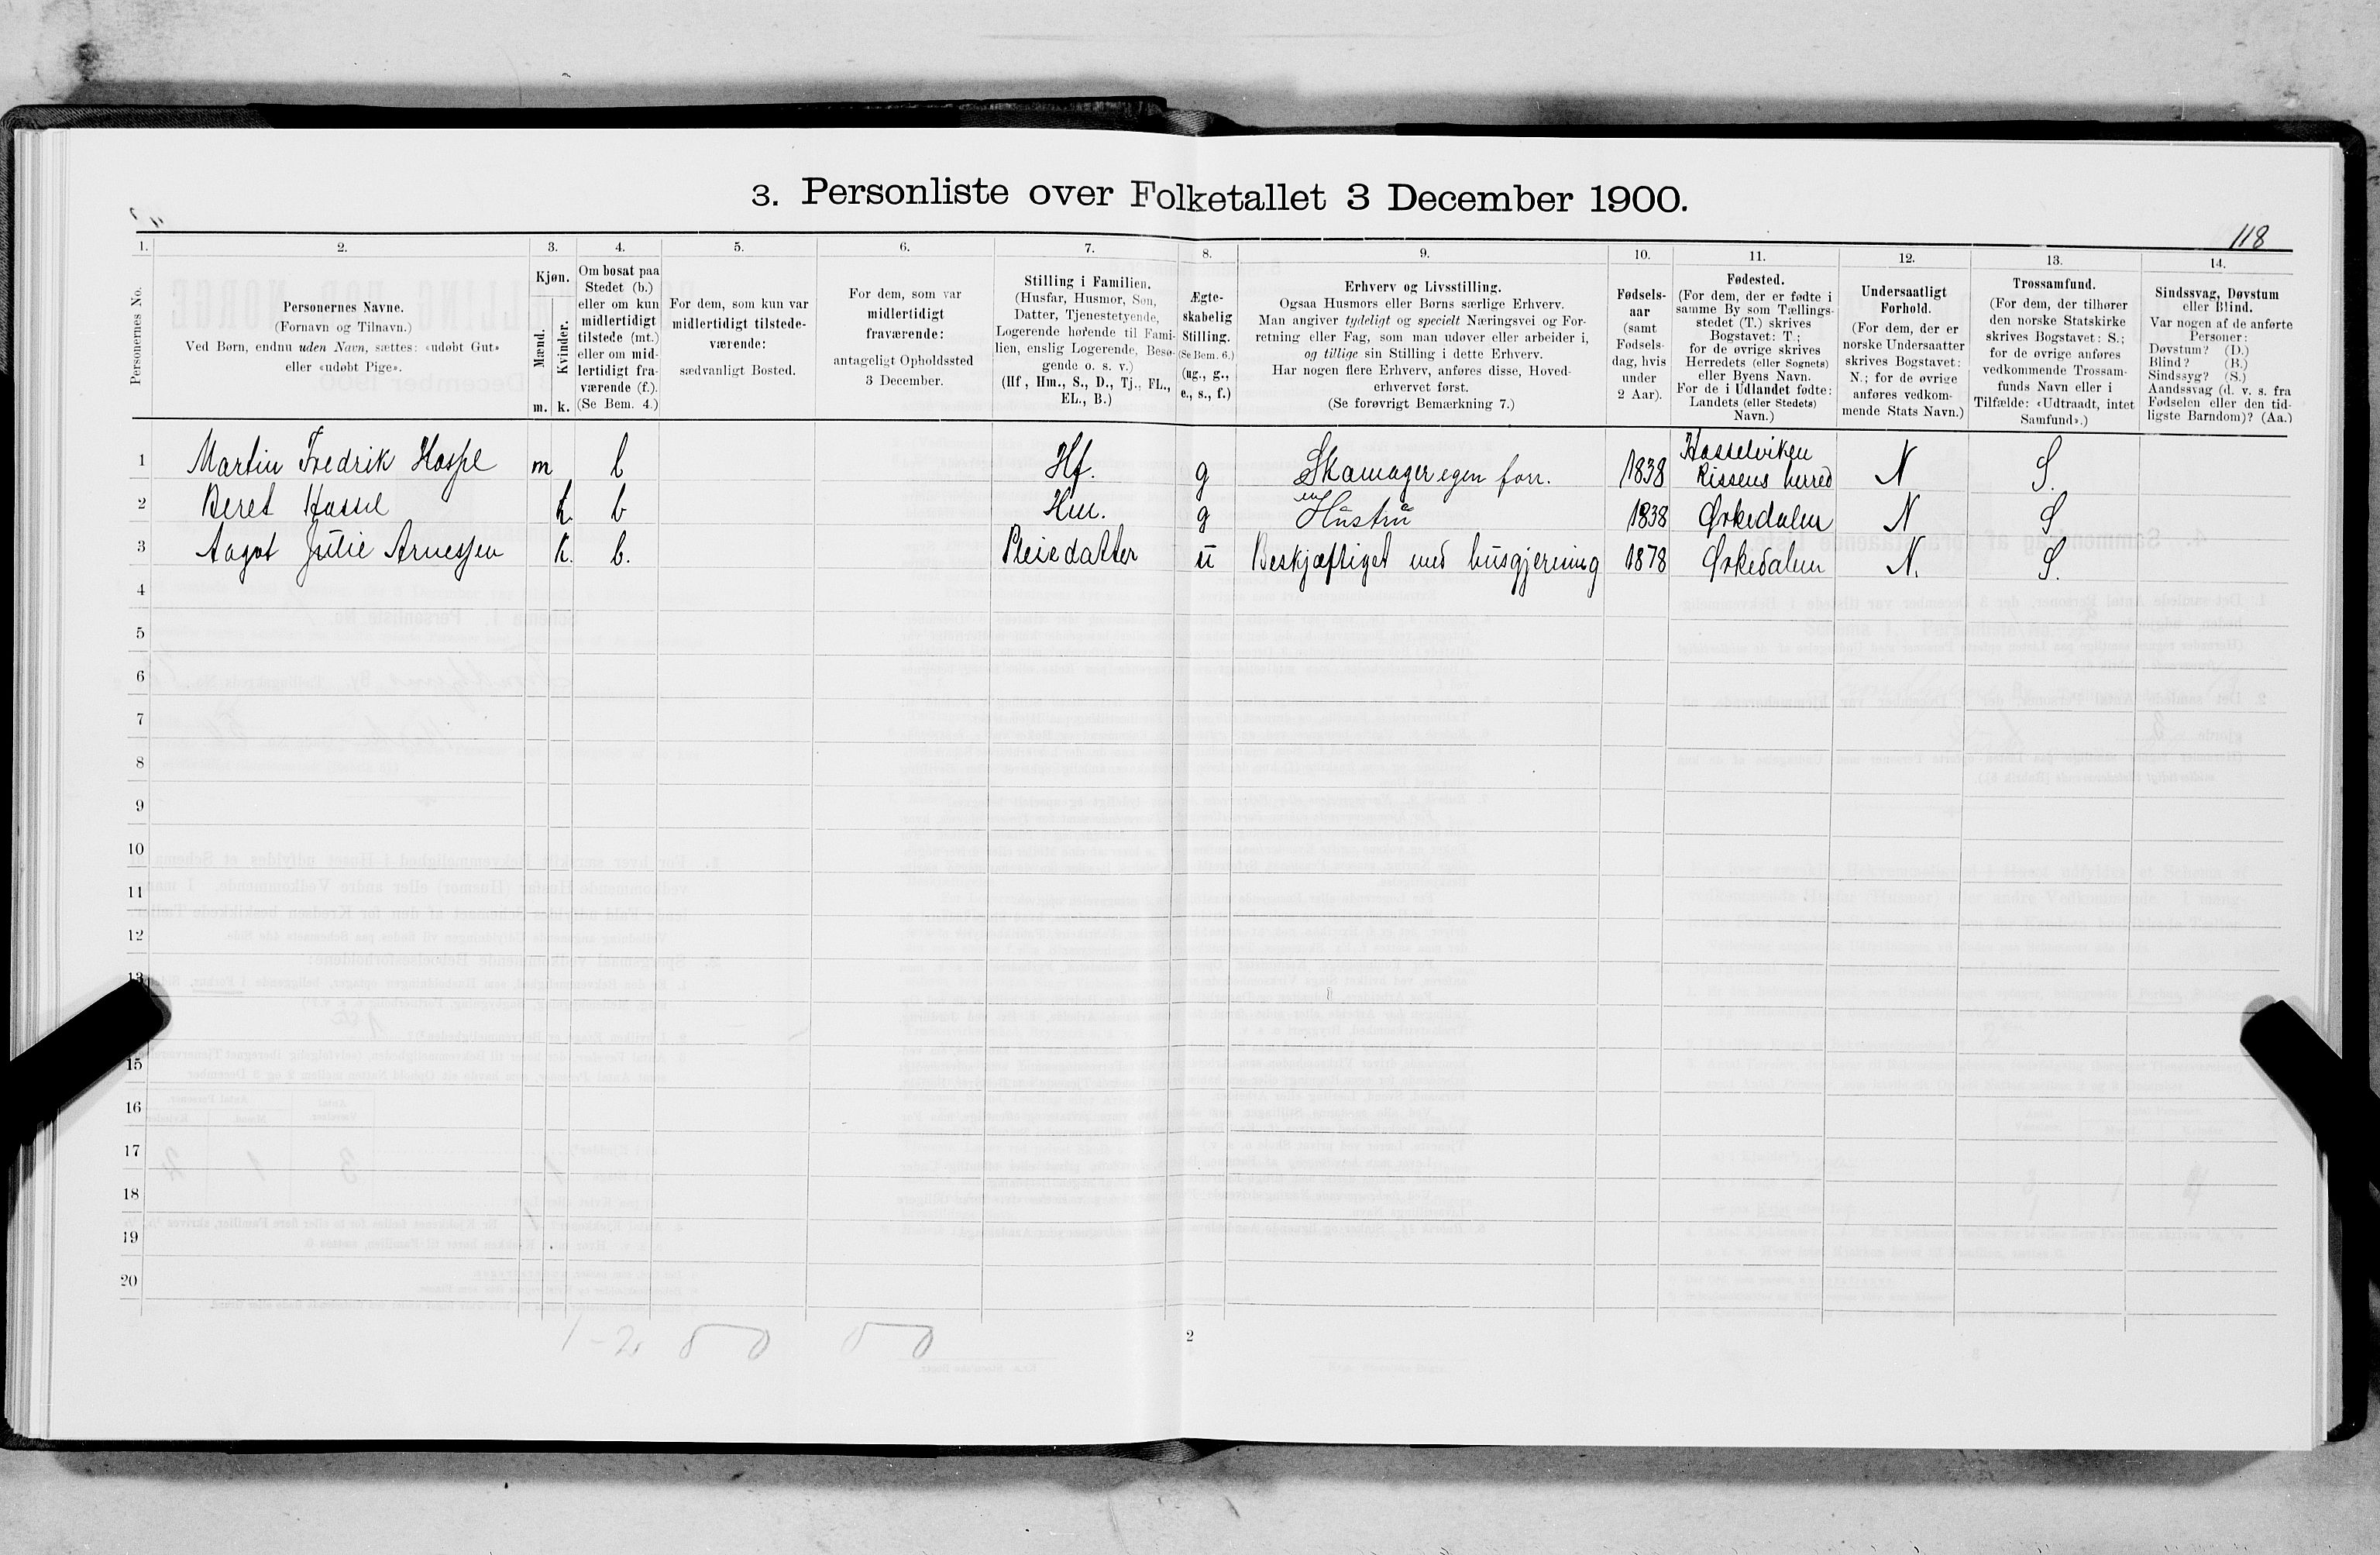 3. Personliste over Folketallet 3 December 1900.
118
1. 2. 3. 4. 5. 6. 7. 8. 9. 10. 11. 12. 13. 14.
Personernes No.
Personernes Navne.
(Fornavn og Tilnavn.)
Ved Børn, endnu uden Navn, sættes: «udøbt Gut»
eller «udøbt Pige».
Kjøn.
Mænd.
Kvinder.
m. k.
Om bosat paa
Stedet (b.)
eller om kun
midlertidigt
tilstede (mt.)
eller om mid-
lertidigt fra-
værende (f.).
(Se Bem. 4.)
For dem, som kun var
midlertidigt tilstede-
værende:
sædvanligt Bosted.
For dem, som var
midlertidigt
fraværende:
antageligt Opholdssted
3 December.
Stilling i Familien.
(Husfar, Husmor, Søn,
Datter, Tjenestetyende,
Logerende hørende til Fami-
lien, enslig Logerende, Besø-
gende o. s. v.)
(Hf, Hm., S., D., Tj., FL.,
EL., B.)
Ægte-
skabelig
Stilling.
(Se Bem. 6.)
(ug., g.,
e., s., f.)
Erhverv og Livsstilling.
Ogsaa Husmors eller Børns særlige Erhverv.
Man angiver tydeligt og specielt Næringsvei og For-
retning eller Fag, som man udøver eller arbeider i,
og tillige sin Stilling i dette Erhverv.
Har nogen flere Erhverv, anføres disse, Hoved-
erhvervet først.
(Se forøvrigt Bemærkning 7.)
Fødsels-
aar
(samt
Fødsels-
dag, hvis
under
2 Aar).
Fødested.
(For dem, der er fødte i
samme By som Tællings-
stedet (T.) skrives
Bogstavet: T.;
for de øvrige skrives
Herredets (eller Sognets)
eller Byens Navn.
For de i Udlandet fødte:
Landets (eller Stedets)
Navn.)
Undersaatligt
Forhold.
(For dem, der er
norske Undersaatter
skrives Bogstavet:
N.; for de øvrige
anføres vedkom-
mende Stats Navn.)
Trossamfund.
(For dem, der tilhører
den norske Statskirke
skrives Bogstavet: S.;
for de øvrige anføres
vedkommende Trossam-
funds Navn eller i
Tilfælde: «Udtraadt, intet
Samfund».)
Sindssvag, Døvstum
eller Blind.
Var nogen af de anførte
Personer:
Døvstum? (D.)
Blind? (B.)
Sindssyg? (S.)
Aandssvag (d. v. s. fra
Fødselen eller den tid-
ligste Barndom)? (Aa.)
1 Martin Fredrik m b Hf. g Skomager egen forr. 1838 Hasselviken Rissens herred N S.
2 Beret Hassel k. b Hm. g Hustru 1838 Ørkedalen N S
3 Aagot Julie Arnessen k. b. Pleiedatter u Beskjæftiget med husgjerning 1878 Ørkedalen N. S.
4
5
6
7
8
9
10
11
12
13
15
16
17
18
19
20
1-2 0 0 0 0
2